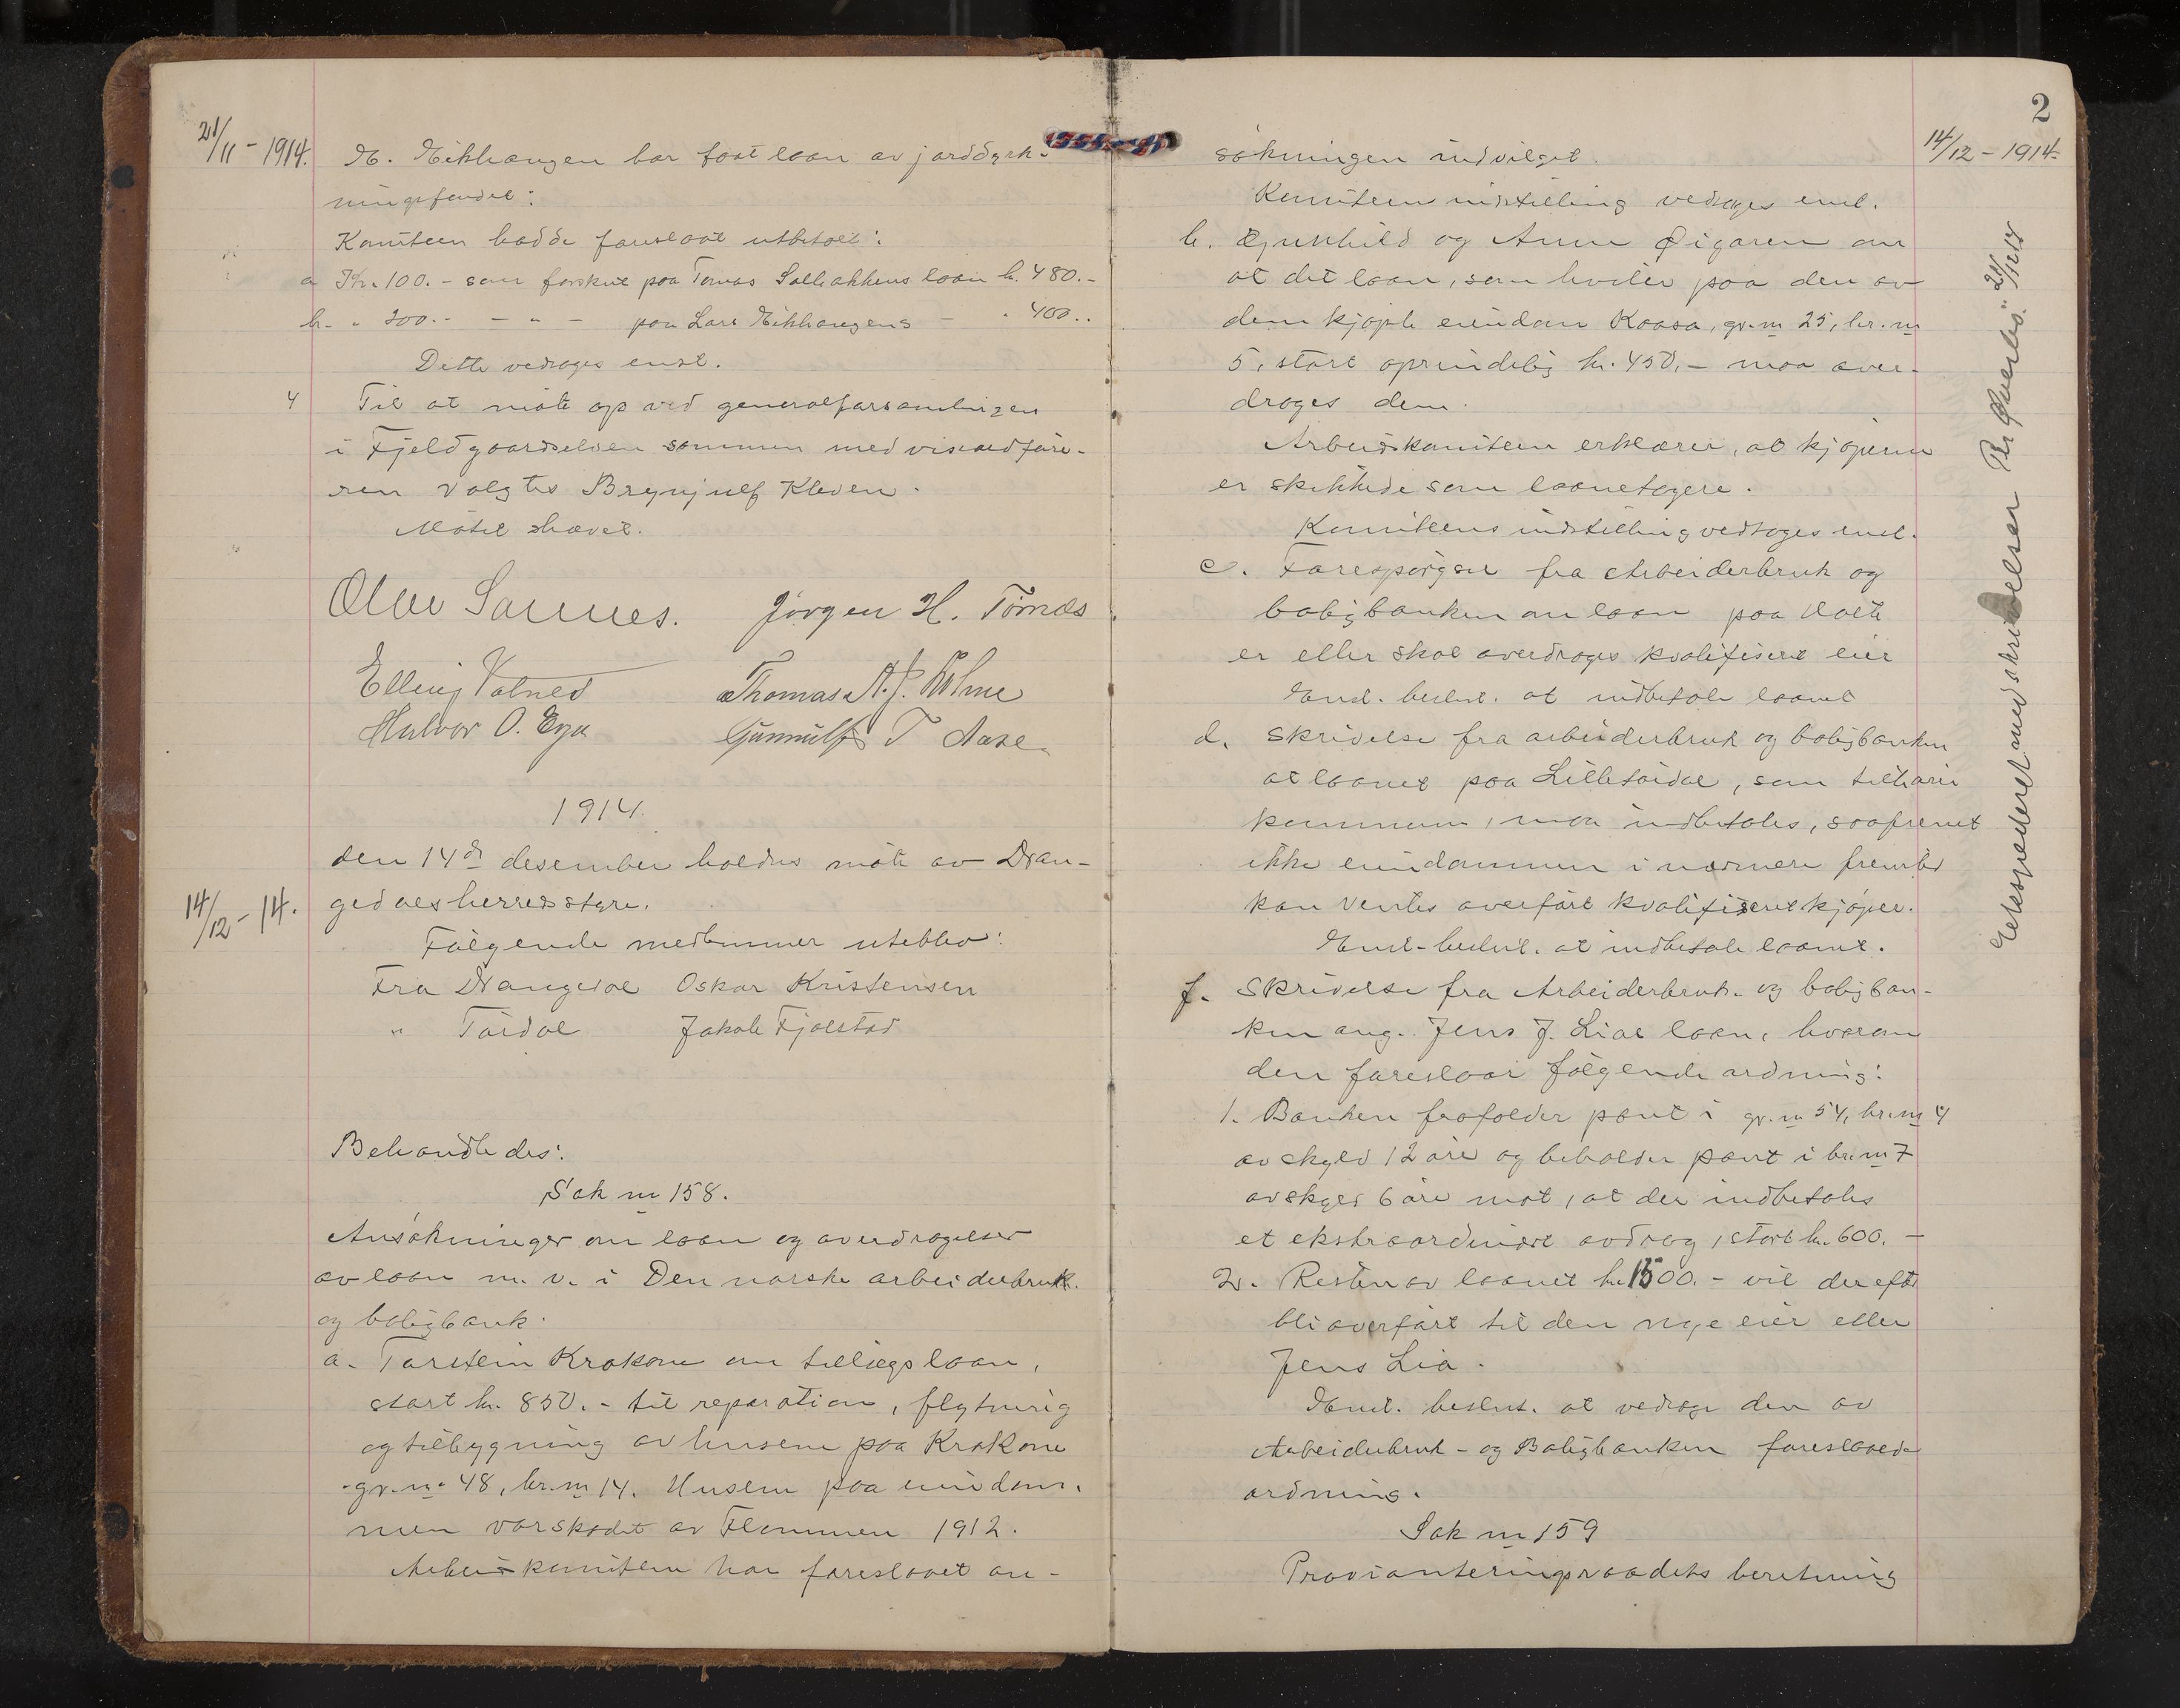 21/11 - 1914.
N. Eikhaugen har faat laan av jorddyrk-
ningsfondet:
Komiteen hadde foreslaat utbetalt:
a Kr. 100.- som forskut paa Tomas Solbakkens laan kr. 480.-
b. " 200.- - " - paa Lars Eikhaugens - " 400..
Dette vedtoges enst.
4 Til at møte op ved generalforsamlingen
i Fjeldgaardselven sammen med viseordføre-
ren valgtes Brynjulf Kleven.
Møtet hævet.
Olav Sannes. Jørgen H. Tørnæs
Elling Valned Thomas A. J. Holme
Halvor O. Ega Gunnulf T Aase
1914.
14/12 - 14.
den 14de desember holdtes møte av Dran-
gedals herredsstyre.
Følgende medlemmer uteblev:
Fra Drangedal Oskar Kristensen
" Tørdal Jakob Fjalstad
Behandledes:
Sak nr 158.
Ansøkninger om laan og overdragelser
av laan m. v. i Den norske arbeiderbruk.
og boligbank.
a. Torstein Krokone om tillægslaan,
stort kr. 850.- til reparation, flytning
og tilbygning av husene paa Krokone
gr. nr 48, br. nr 14. Husene paa eiendom-
men var skadet av Flommen 1912.
Arbeidskomiteen har foreslaaet an-
2
14/12 - 1914.
søkningen indvilget.
Komiteens indstilling vedtoges enst.
b. Gunhild og Anne Øigaren om
at det laan, som hviler paa den av
dem kjøpte eiendom Kaasa, gr. nr 25, br. nr
5, stort oprindelig kr. 450,- maa over-
drages dem.
Arbeidskomiteen erklærer, at kjøperne
er skikkede som laanetagere.
Komiteens indstilling vedtoges enst.
c. Forespørgsel fra Arbeiderbruk og
boligbanken om laan paa
er eller skal overdrages kvalifisert eier
Enst. beslut. at indbetale laanet
d. Skrivelse fra arbeiderbruk og boligbanken
at laanet paa Lilletørdal, som tilhører
kommunen, maa indbetales, saafremt
ikke eiendommen i nærmere fremtid
kan ventes overført kvalifiseret kjøper.
Enst. beslut. at indbetale laanet.
f. Skrivelse fra Arbeiderbruk- og boligban-
ken ang. Jens J. Lias laan, hvorom
den foreslaar følgende ordning:
1. Banken frafalder pant i gr. nr 54, br. nr 4
av skyld 12 øre og beholder pant i br. nr 7
av skyld 6 øre mot, at der indbetales
et ekstraordinært avdrag, stort kr. 600.-
2. Resten av laanet kr. 1500.- vil derefter
bli overført til den nye eier eller
Jens Lia.
Enst. beslut. at vedtage den av
Arbeiderbruk- og Boligbanken foreslaaede
ordning.
Sak nr 159
Provianteringsraadets beretning
Ekspederet med skrivelser Per Øverbø. 21/12 14